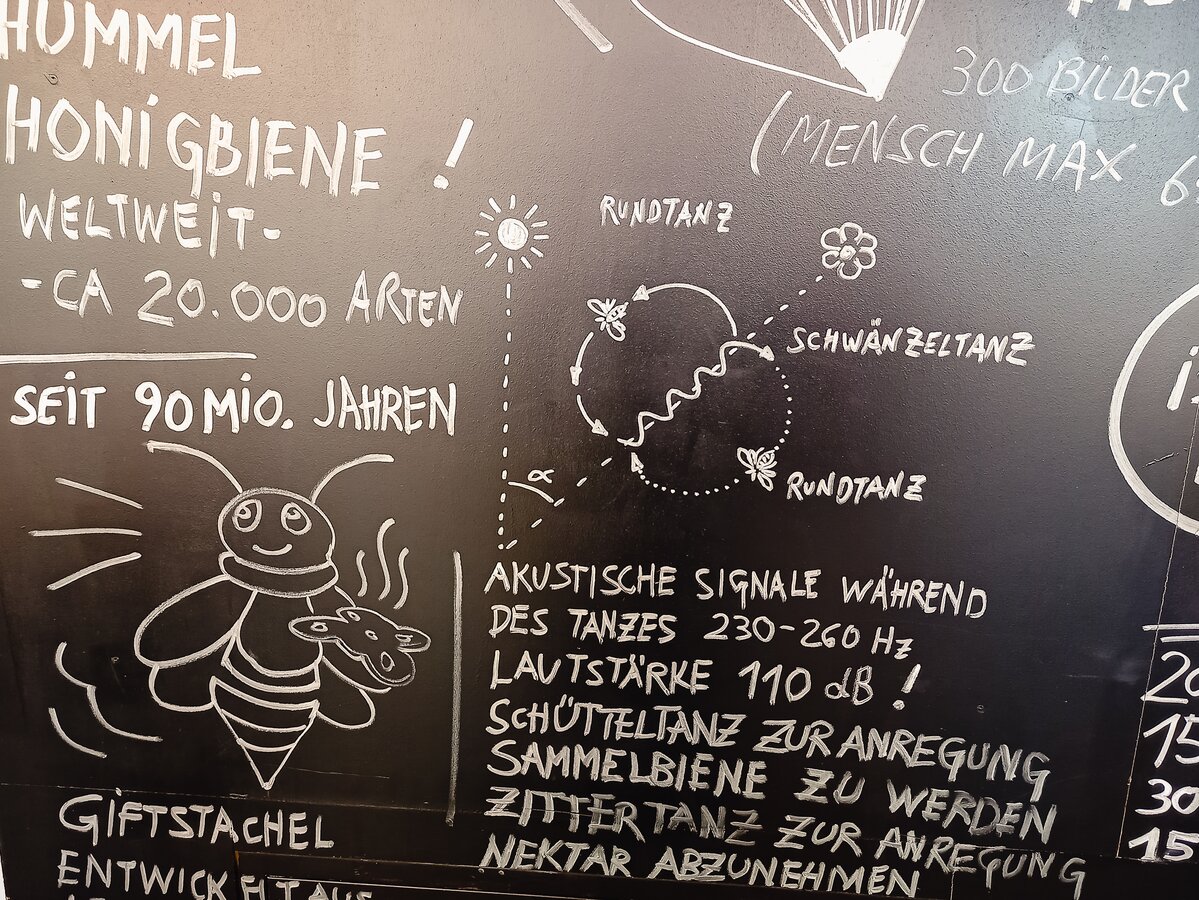 HUMMEL
HONIGBIENE!
WELTWEIT-
-CA 20.000 ARTEN
SEIT 90 MIO. JAHREN
GIFTSTACHEL
300 BILDER
(MENSCH MAX 6
RUNDTANZ
SCHWÄNZELTANZ
RUNDTANZ
α
AKUSTISCHE SIGNALE WÄHREND
DES TANZES 230-260 Hz
LAUTSTÄRKE 110 dB!
SCHÜTTELTANZ ZUR ANREGUNG
SAMMELBIENE ZU WERDEN
ZITTERTANZ ZUR ANREGUNG
NEKTAR ABZUNEHMEN
15
30
15